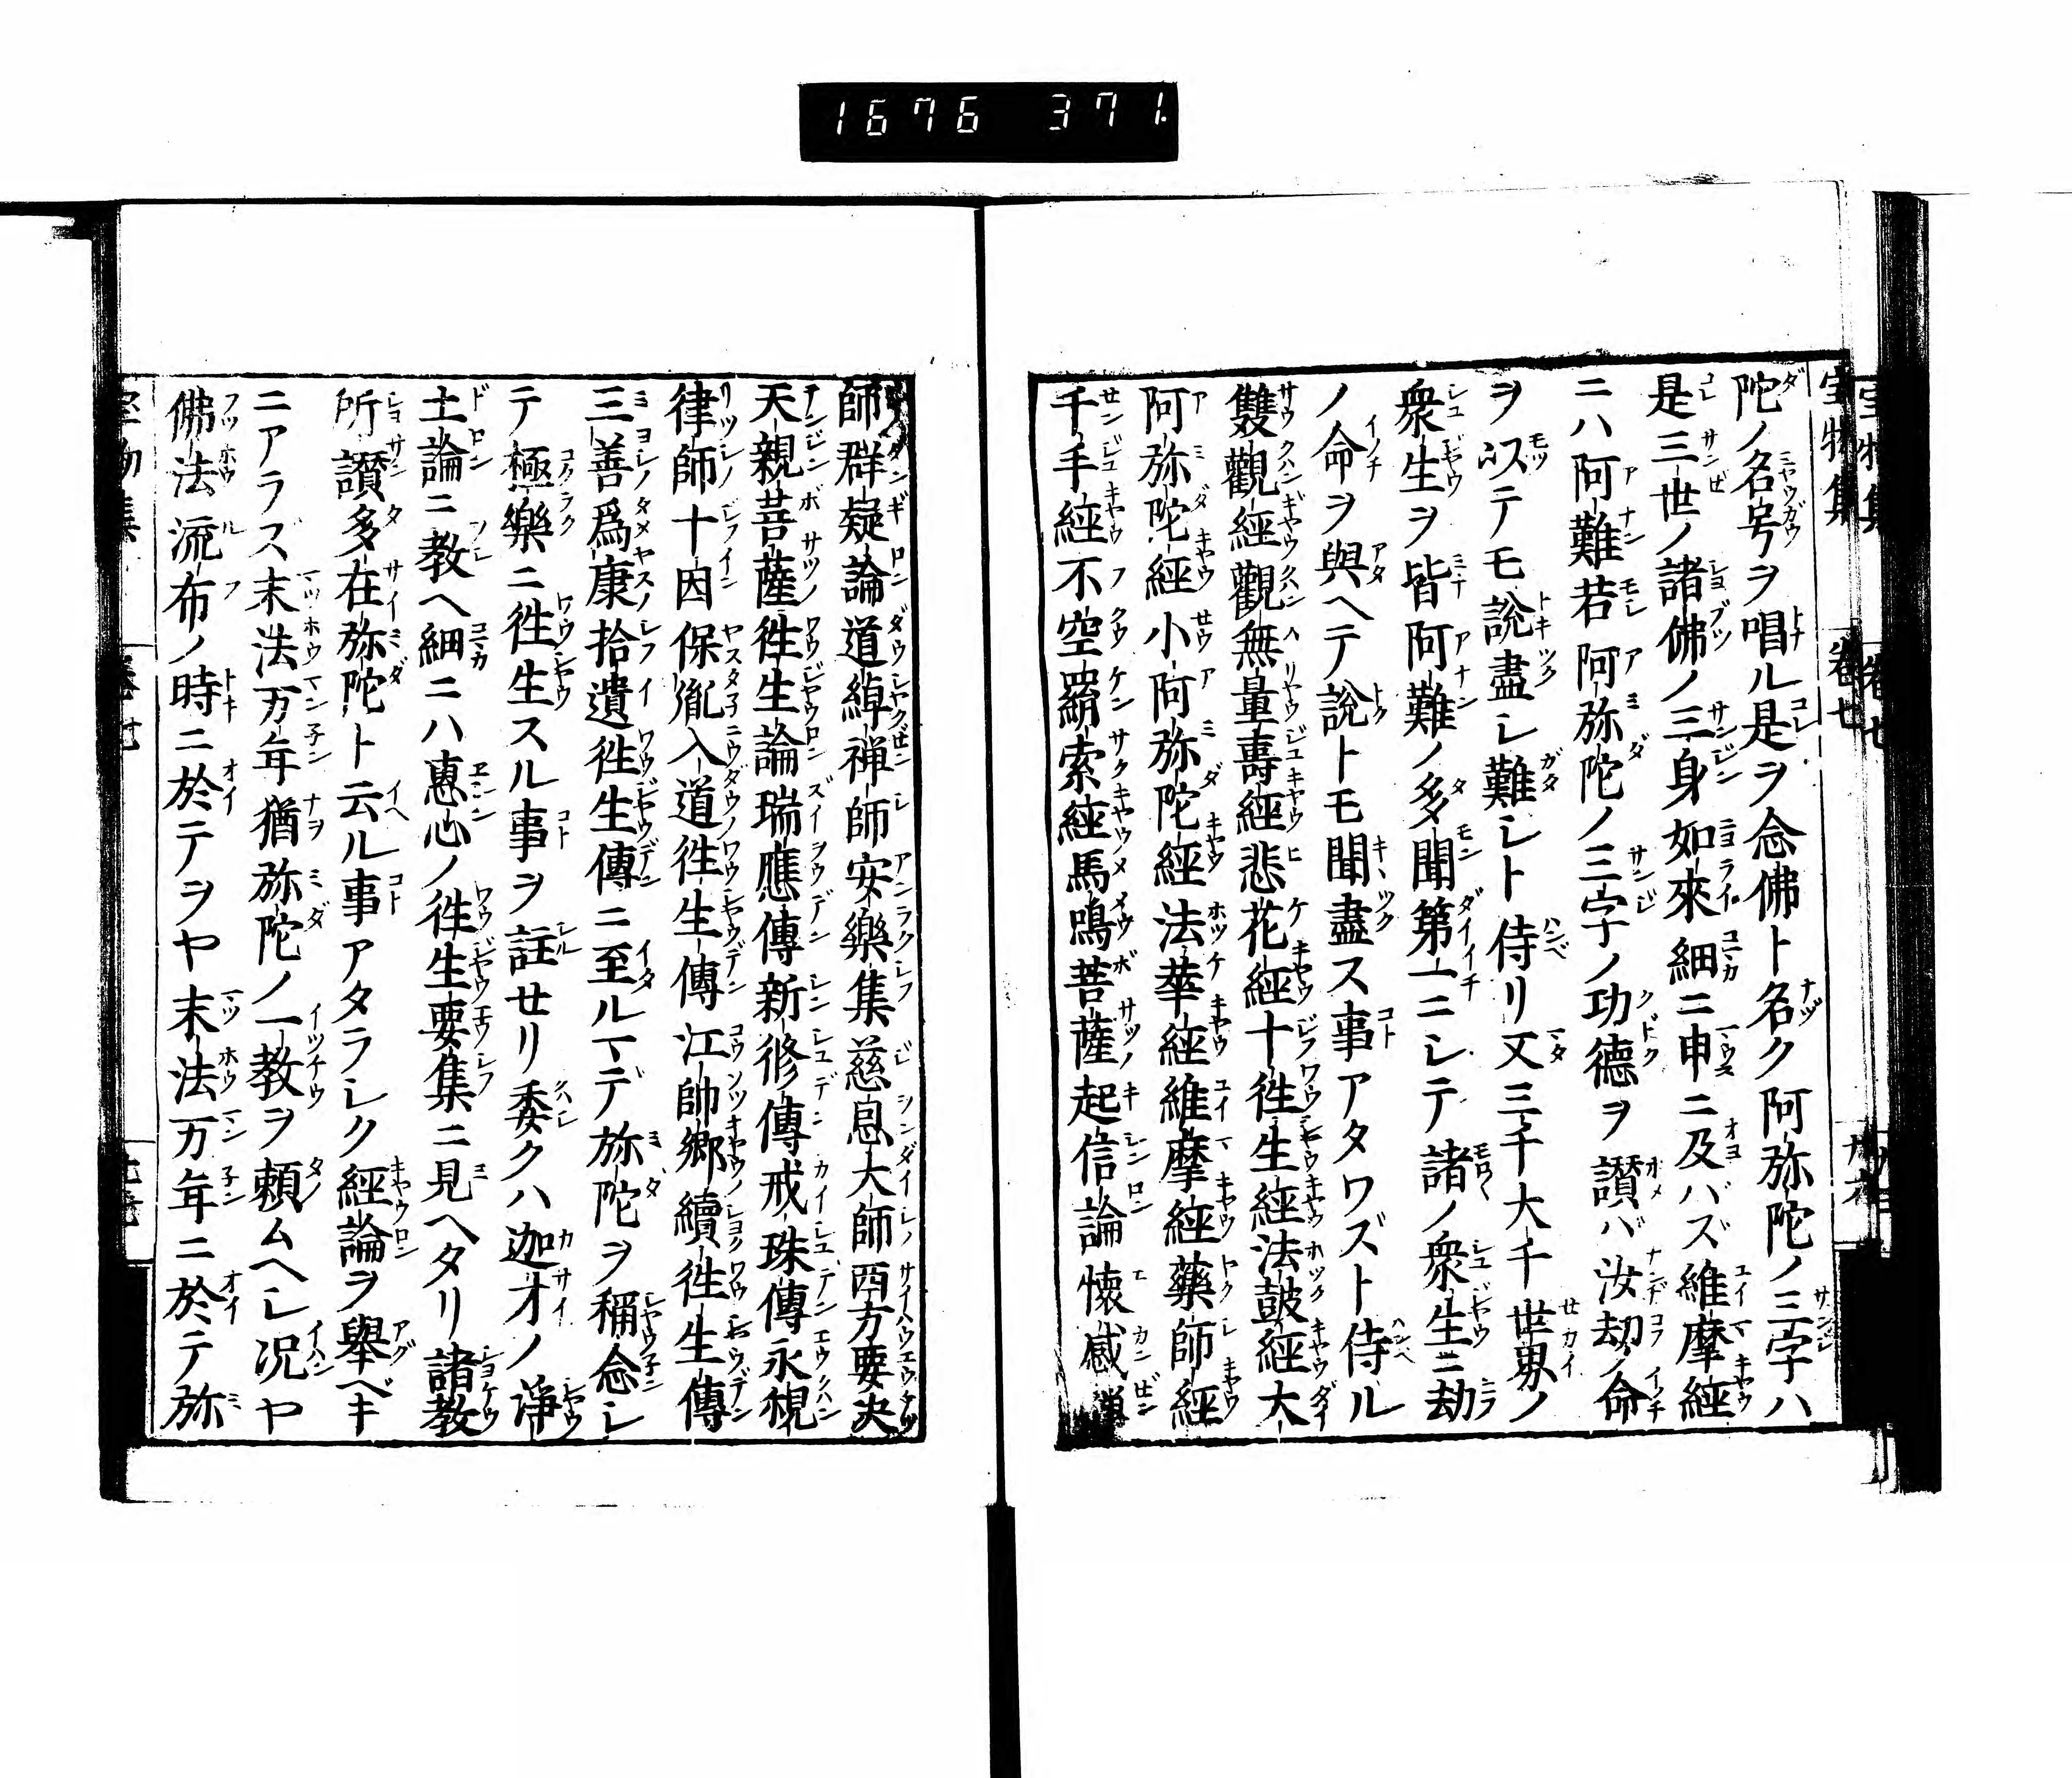 1676 371.
陀ノ名号ヲ唱ル是ヲ念佛ト名ク阿弥陀ノ三字ハ
是三世ノ諸佛ノ三身如來細ニ申ニ及バズ維摩經
ニハ阿難若阿弥陀ノ三字ノ功德ヲ讃バ汝劫ノ命
ヲ以テモ說盡シ難シト侍リ又三千大千世界ノ
衆生ヲ皆阿難ノ多聞第一ニシテ諸ノ衆生ニ劫
ノ命ヲ與ヘテ說トモ聞盡ス事アタワズト侍ル
雙觀經觀無量壽經悲花經十徃生經法鼓經大
阿弥陀經小阿弥陀經法華經維摩經藥師經
千手經不空羂索經馬鳴菩薩起信論懷感禅
師群疑論道綽禅師安樂集慈恩大師西方要决
天親菩薩徃生論瑞應傳新修傳戒珠傳永観
律師十因保胤入道徃生傳江帥郷續徃生傳
三善爲康拾遺徃生傳ニ至ルマデ弥陀ヲ稱念シ
テ極樂ニ徃生スル事ヲ註せリ委クハ迦才ノ淨
土論ニ教ヘ細ニハ惠心ノ徃生要集ニ見ヘタリ諸教
所讃多在弥陀ト云ル事アタラシク經論ヲ舉ベキ
ニアラズ末法万年猶弥陀ノ一教ヲ頼ムヘシ况ヤ
佛法流布ノ時ニ於テヲヤ末法万年ニ於テ弥